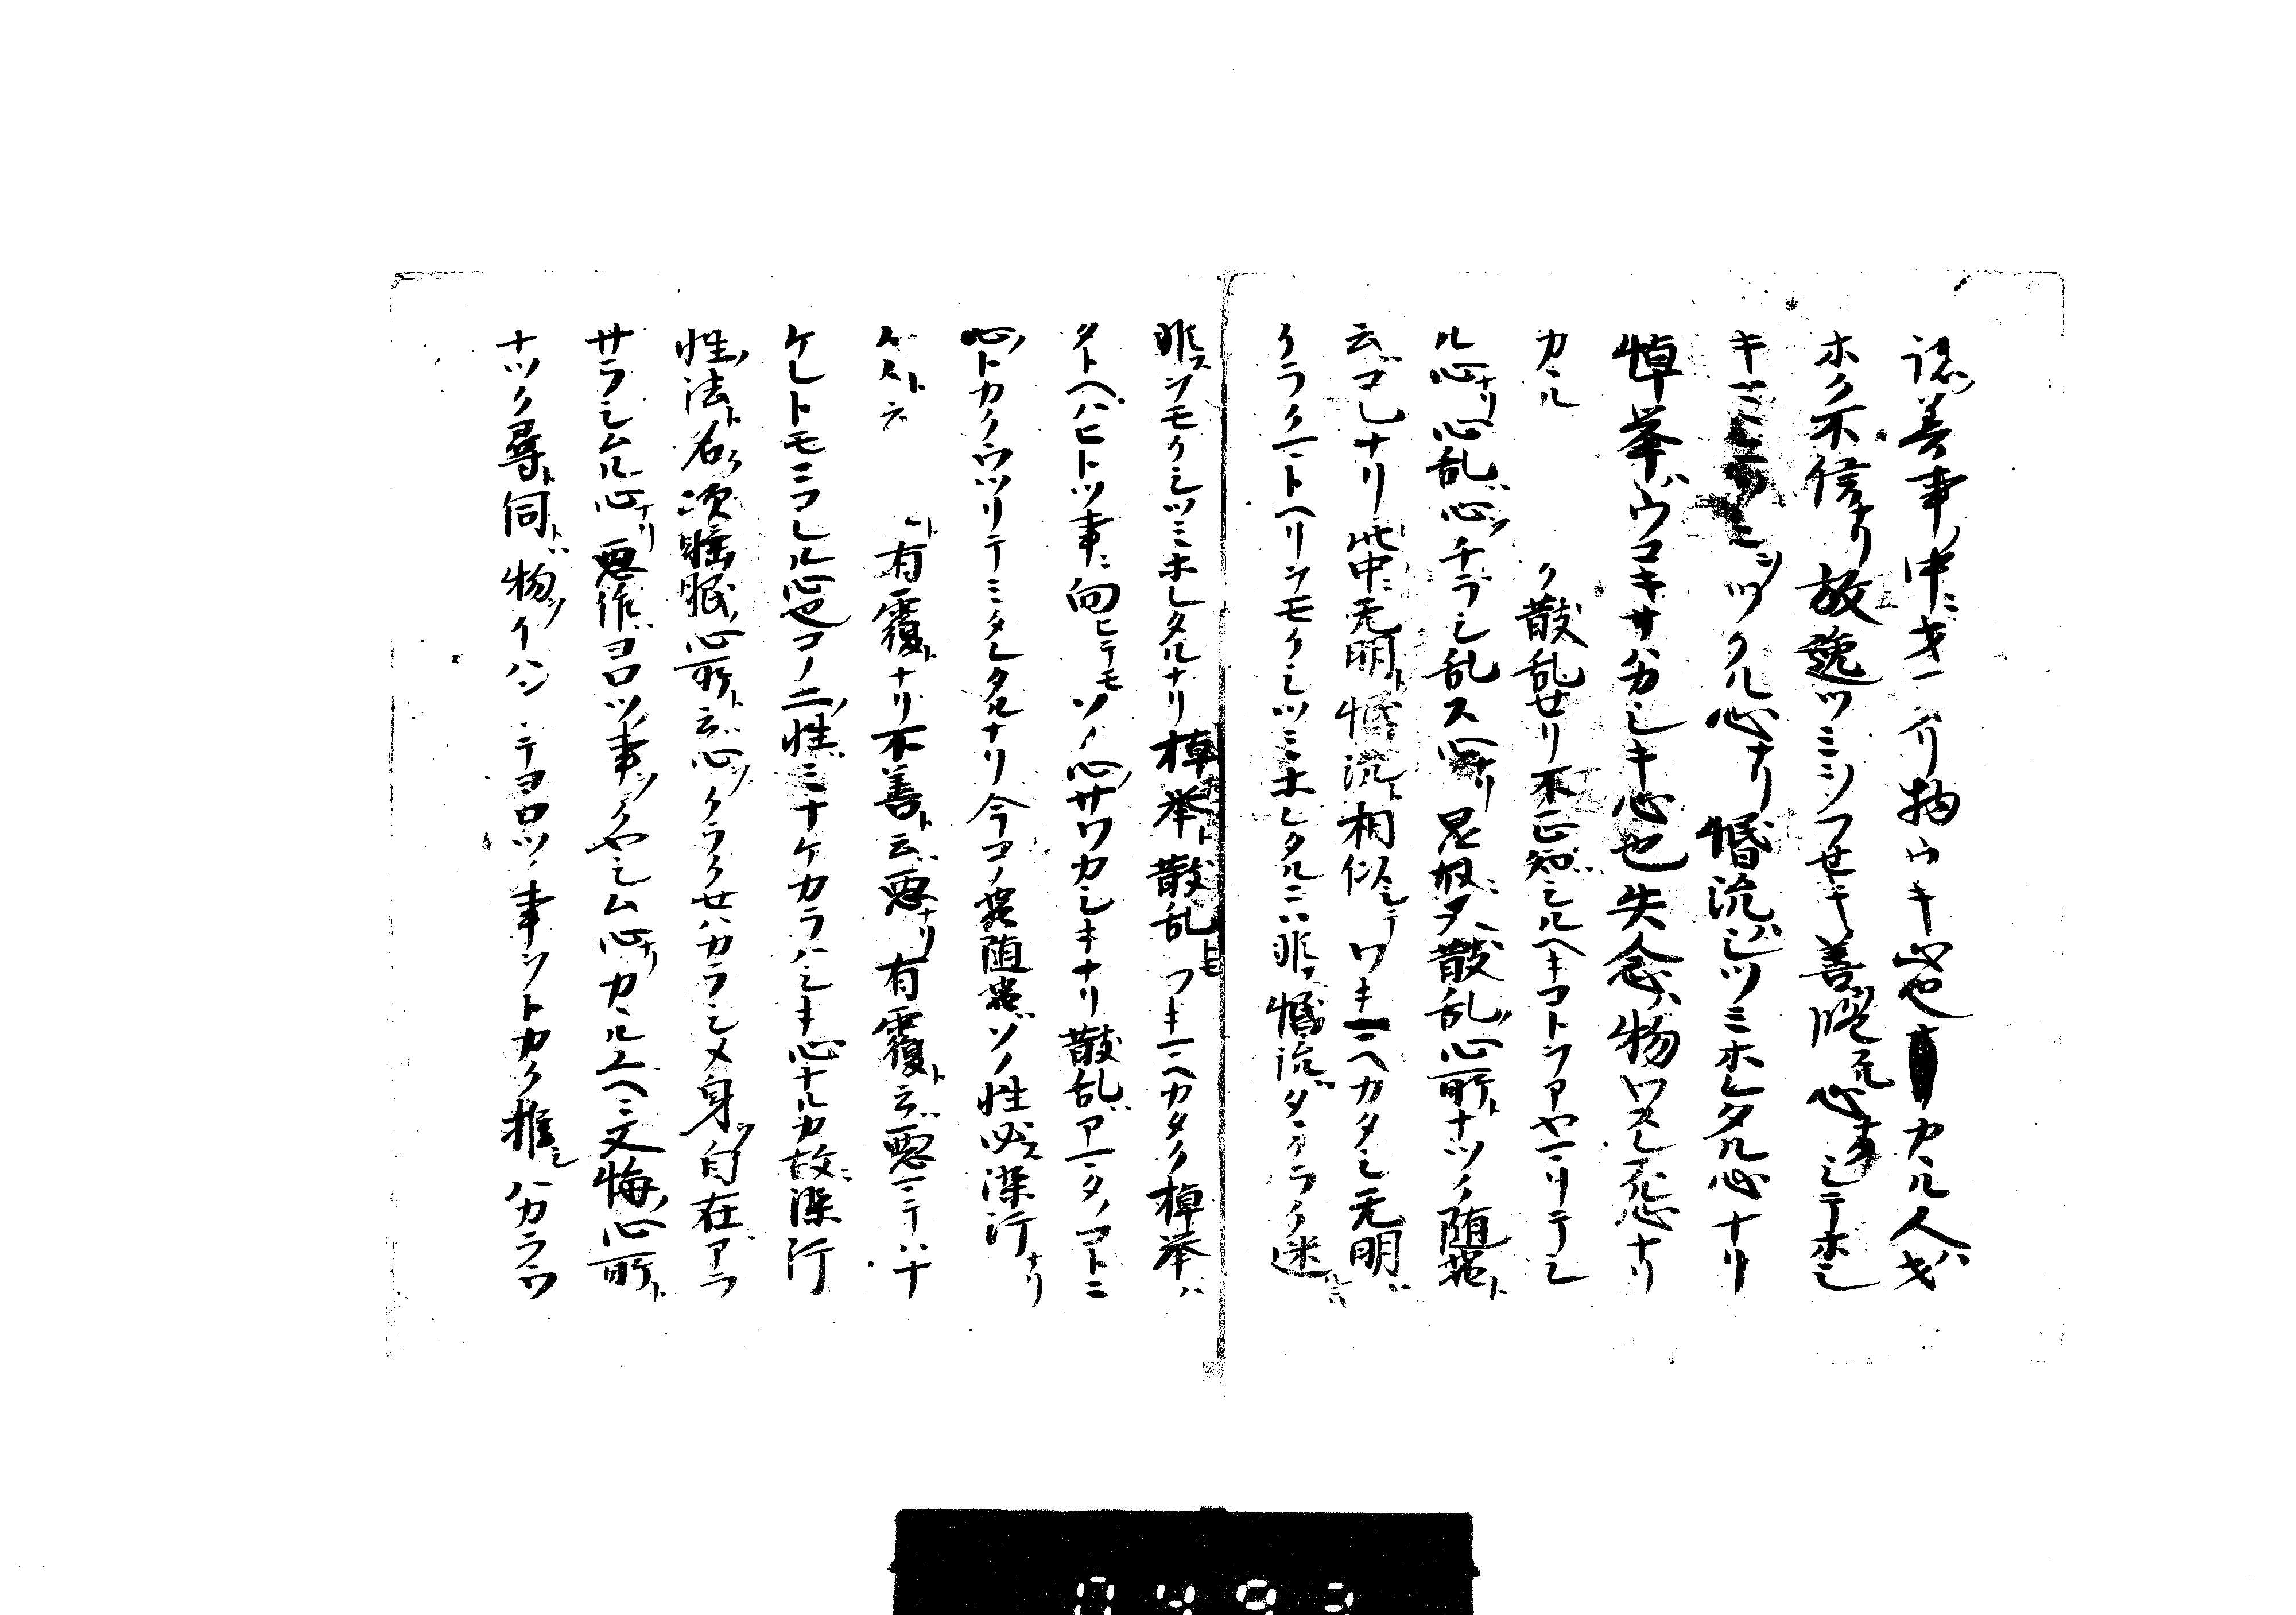 諸ノ善事ノ中ニオコタリ物ウキ心也カヽル人ハオ
ホク不信ナリ放逸ツミシフせキ善心ナシニテホシ
キマヽニツクル心ナリ惛沈ハシツミホレタル心ナリ
悼挙ハウコキサハカシキ心也失念ハ物ワスレスル心ナリ
カヽル ク散乱せリ不正知ハシルヘキコトヲアヤマリテシ
ル心ナリ心乱ハ心ヲチラシ乱ス心ナリ是ヲハ又ハ散乱ノ心所トナツク随煩ト
云ハコレナリ此中ニ无明ト惛沈ト相似シテワキマヘカタシ无明ハ
クラクマトヘリヲモクシツミホレタルニハ非ス惛沈ハタヽクラク迷
非スヲモクシツミホレタルナリ悼挙ト散乱トモワキマヘカタク悼挙ハ
タトヘハヒトツ事ニ向ヒテモソノ心サワカシキナリ散乱ハアマタノコトニ
心ノトカクウツリテミタレタルナリ今コノ煩随煩ハソノ性必ス染汙ナリ
有覆トナリ不善ト云ハ悪ナリ有覆ト云ハ悪マテハナ
ケレトモニコレル心也コノ二ノ性ハミナケカラハシキ心ナルカ故ニ染汙
性ノ法ト名ク次睡眠ノ心所ト云ハ心ヲクラクせハカラシメ身ヲ自在ニアラ
サラシムル心ナリ悪作ハヨロツノ事ヲクヤシム心ナリカヽルユヘニ又悔ノ心所ト
ナツク尋ト伺トハ物ヲイハンニテヨロツノ事ヲトカク推シハカラウ